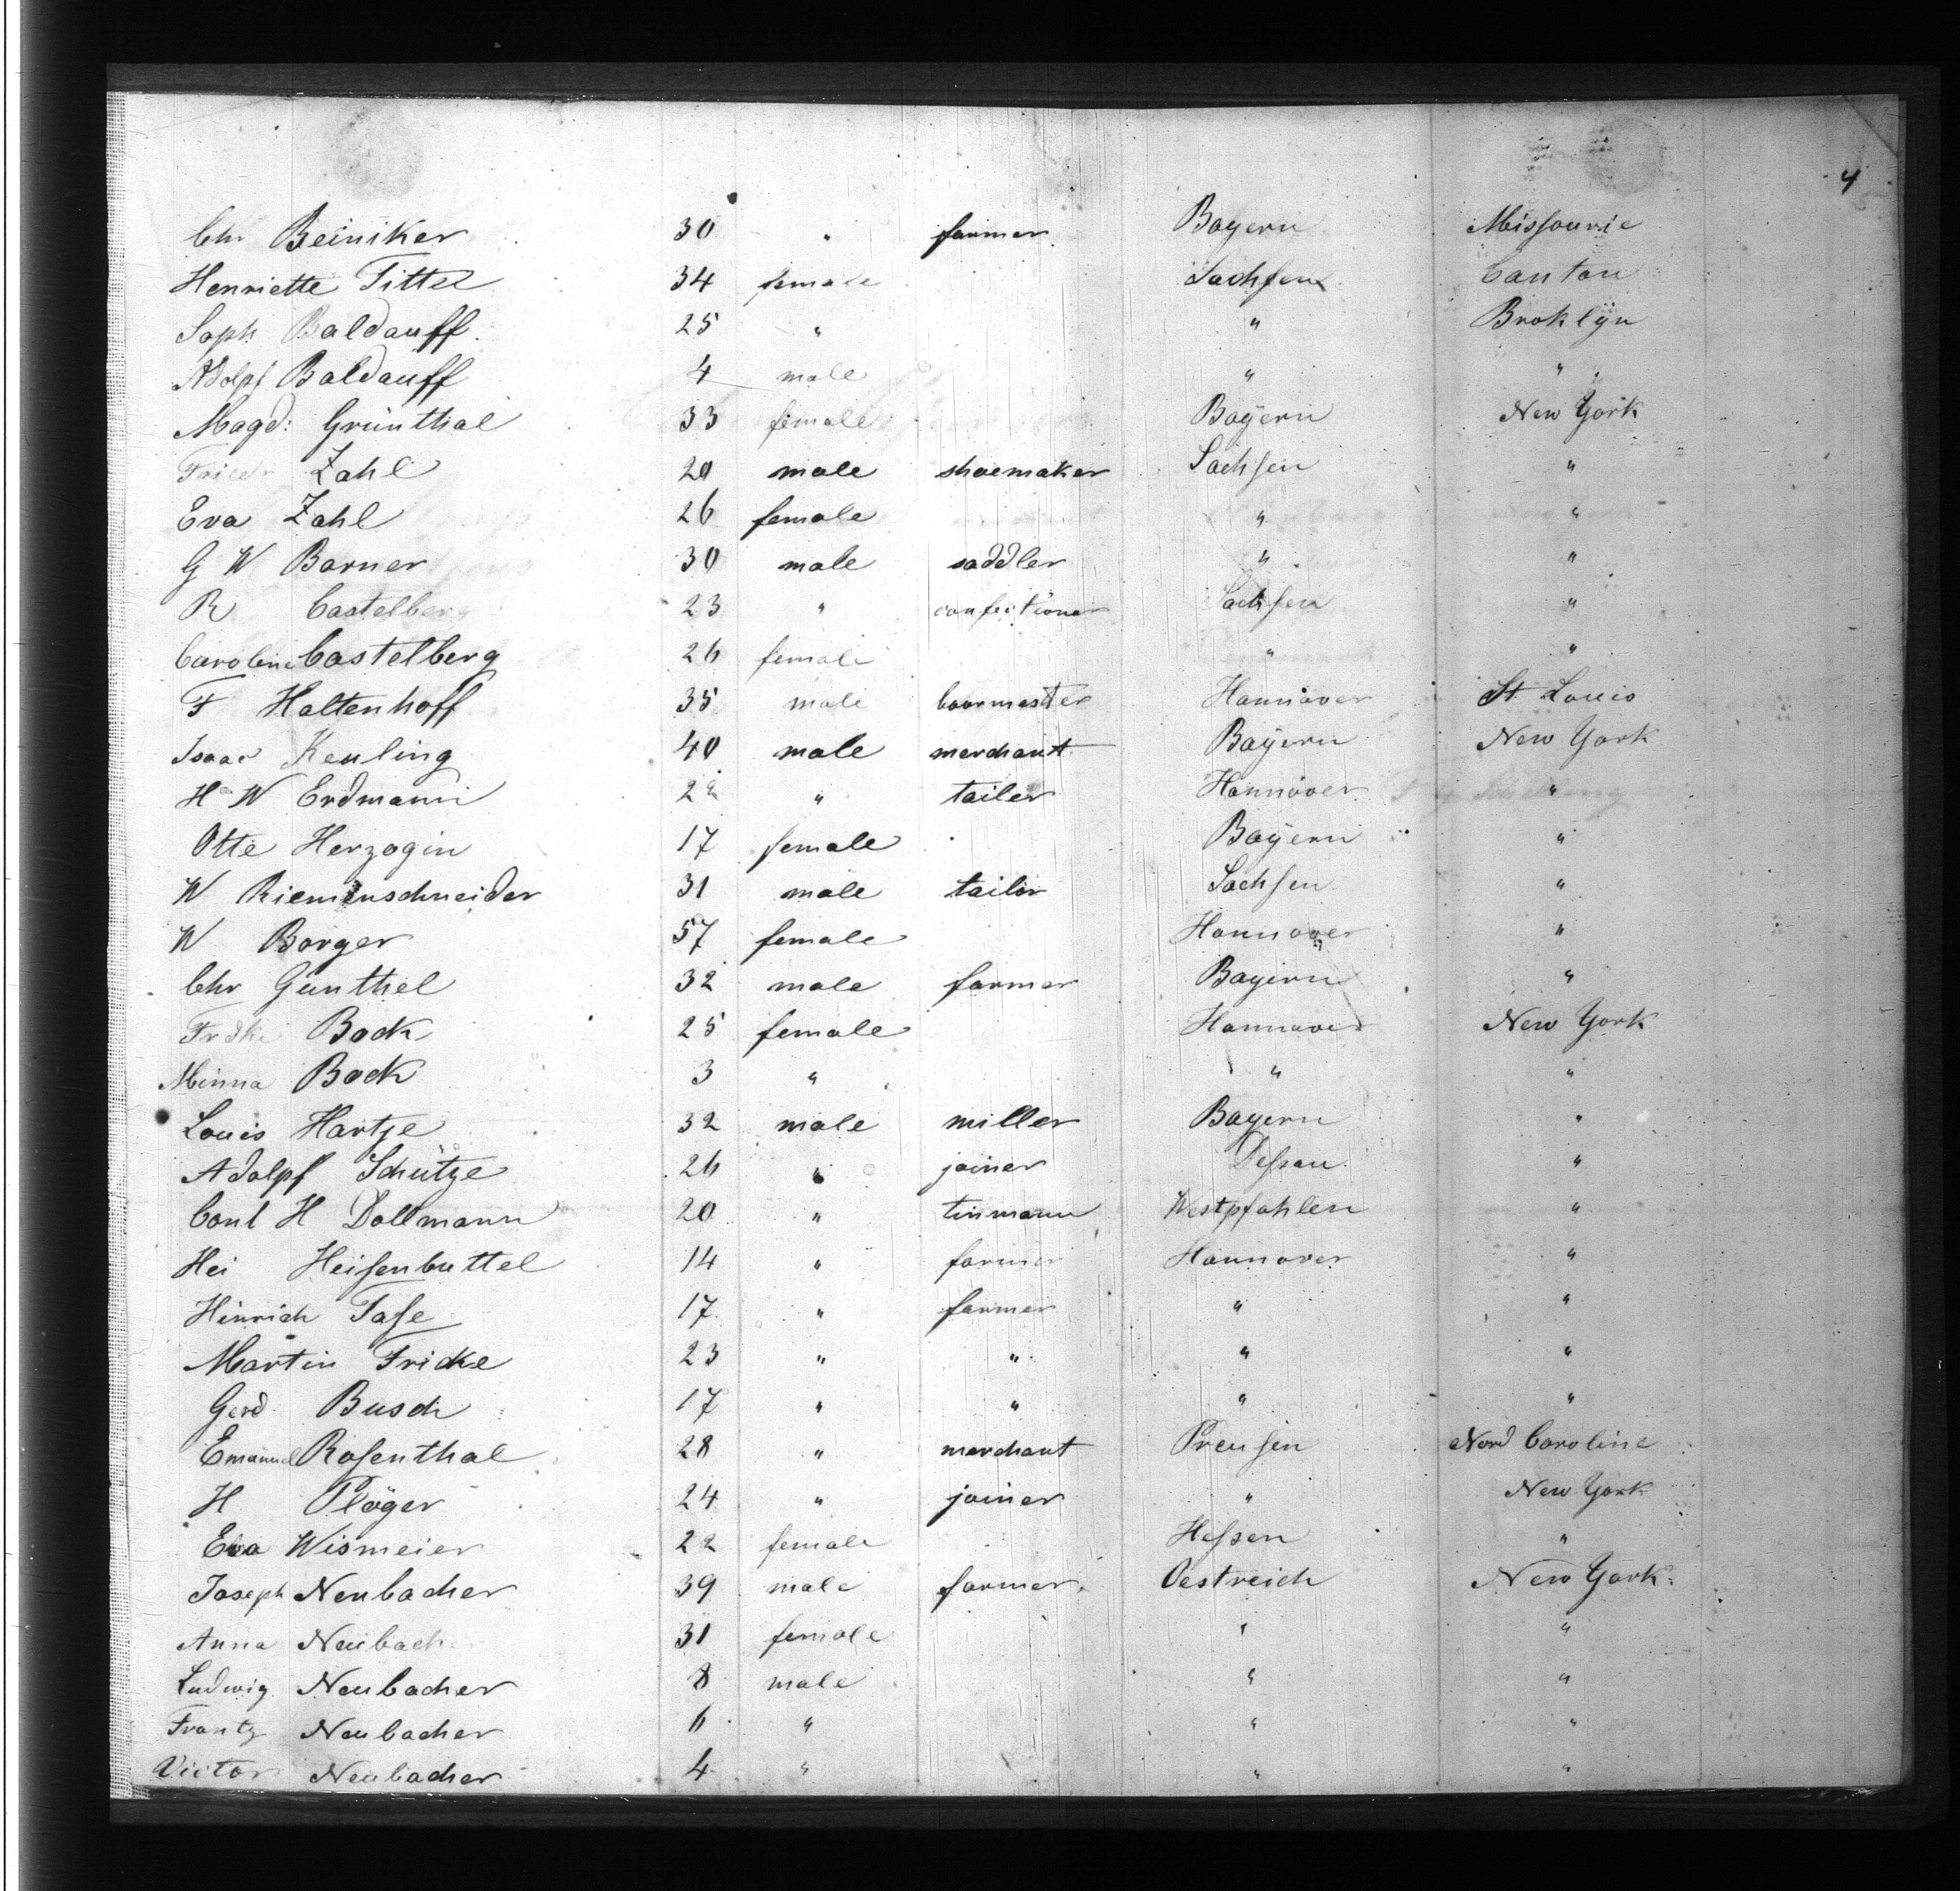 4
Chr Beiniker 30 " farmer Bayern Missourie
Henriette Tittel 34 female Sachsen Canton
Soph Baldauff 25 " " Broklyn
Adolpf Baldauff 4 male " "
Magd: Grünthal 33 female Bayern New York
Friedr Zahl 20 male shoemaker Sachsen "
Eva Zahl 26 female " "
G W Barner 30 male saddler " "
R Castelberg 23 " confectioner Sachsen "
Caroline Castelberg 26 female " "
F Haltenhoff 35 male Hannover St Louis
Isaac Keuling 40 male merchant Bayern New York
H W Erdmann " tailer Hannover "
Otte Herzogin 17 female Bayern "
W Riemenschneider 31 male tailor Sachsen "
W Borger 57 female Hannover "
Chr Günthel 32 male farmer Bayern "
Frdke Bock 25 female Hannover New York
Minna Bock 3 " " "
Louis Hartze 32 male miller Bayern "
Adolpf Schütze 26 " joiner Dessau "
H Dollmann 20 " tinmann Westpfahlen "
Hei Heisenbuttel 14 " farmer Hannover "
Hinrich Tase 17 " farmer " "
Martin Fricke 23 " " " "
Gerd Busch 17 " " " "
Emanuel Rosenthal 28 " merchant Preusen Nord Caroline
H Plöger 24 " joiner " New York
Eva Wismeier 22 female Hessen "
Joseph Neubacher 39 male farmer Oestreich New York
Anna Neubach 31 female " "
Ludwig Neubacher 8 male " "
Frantz Neubacher 6 " " "
Victor Neubacher 4 " " "